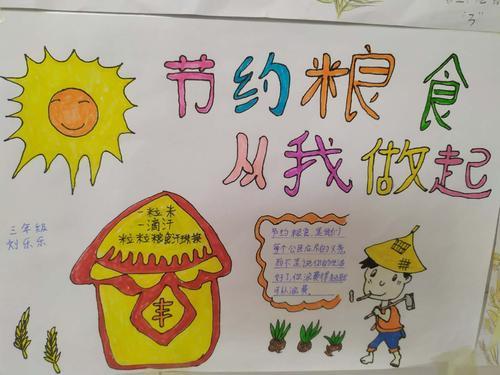 节约粮食
从我做起
三年级
刘乐乐
一粒米
一滴汗
粒粒粮食汗珠换
丰
节约粮食 是我们
每个公民应尽的义务
而不是说你的生活
好了,你浪费得起就
可以浪费
"3"